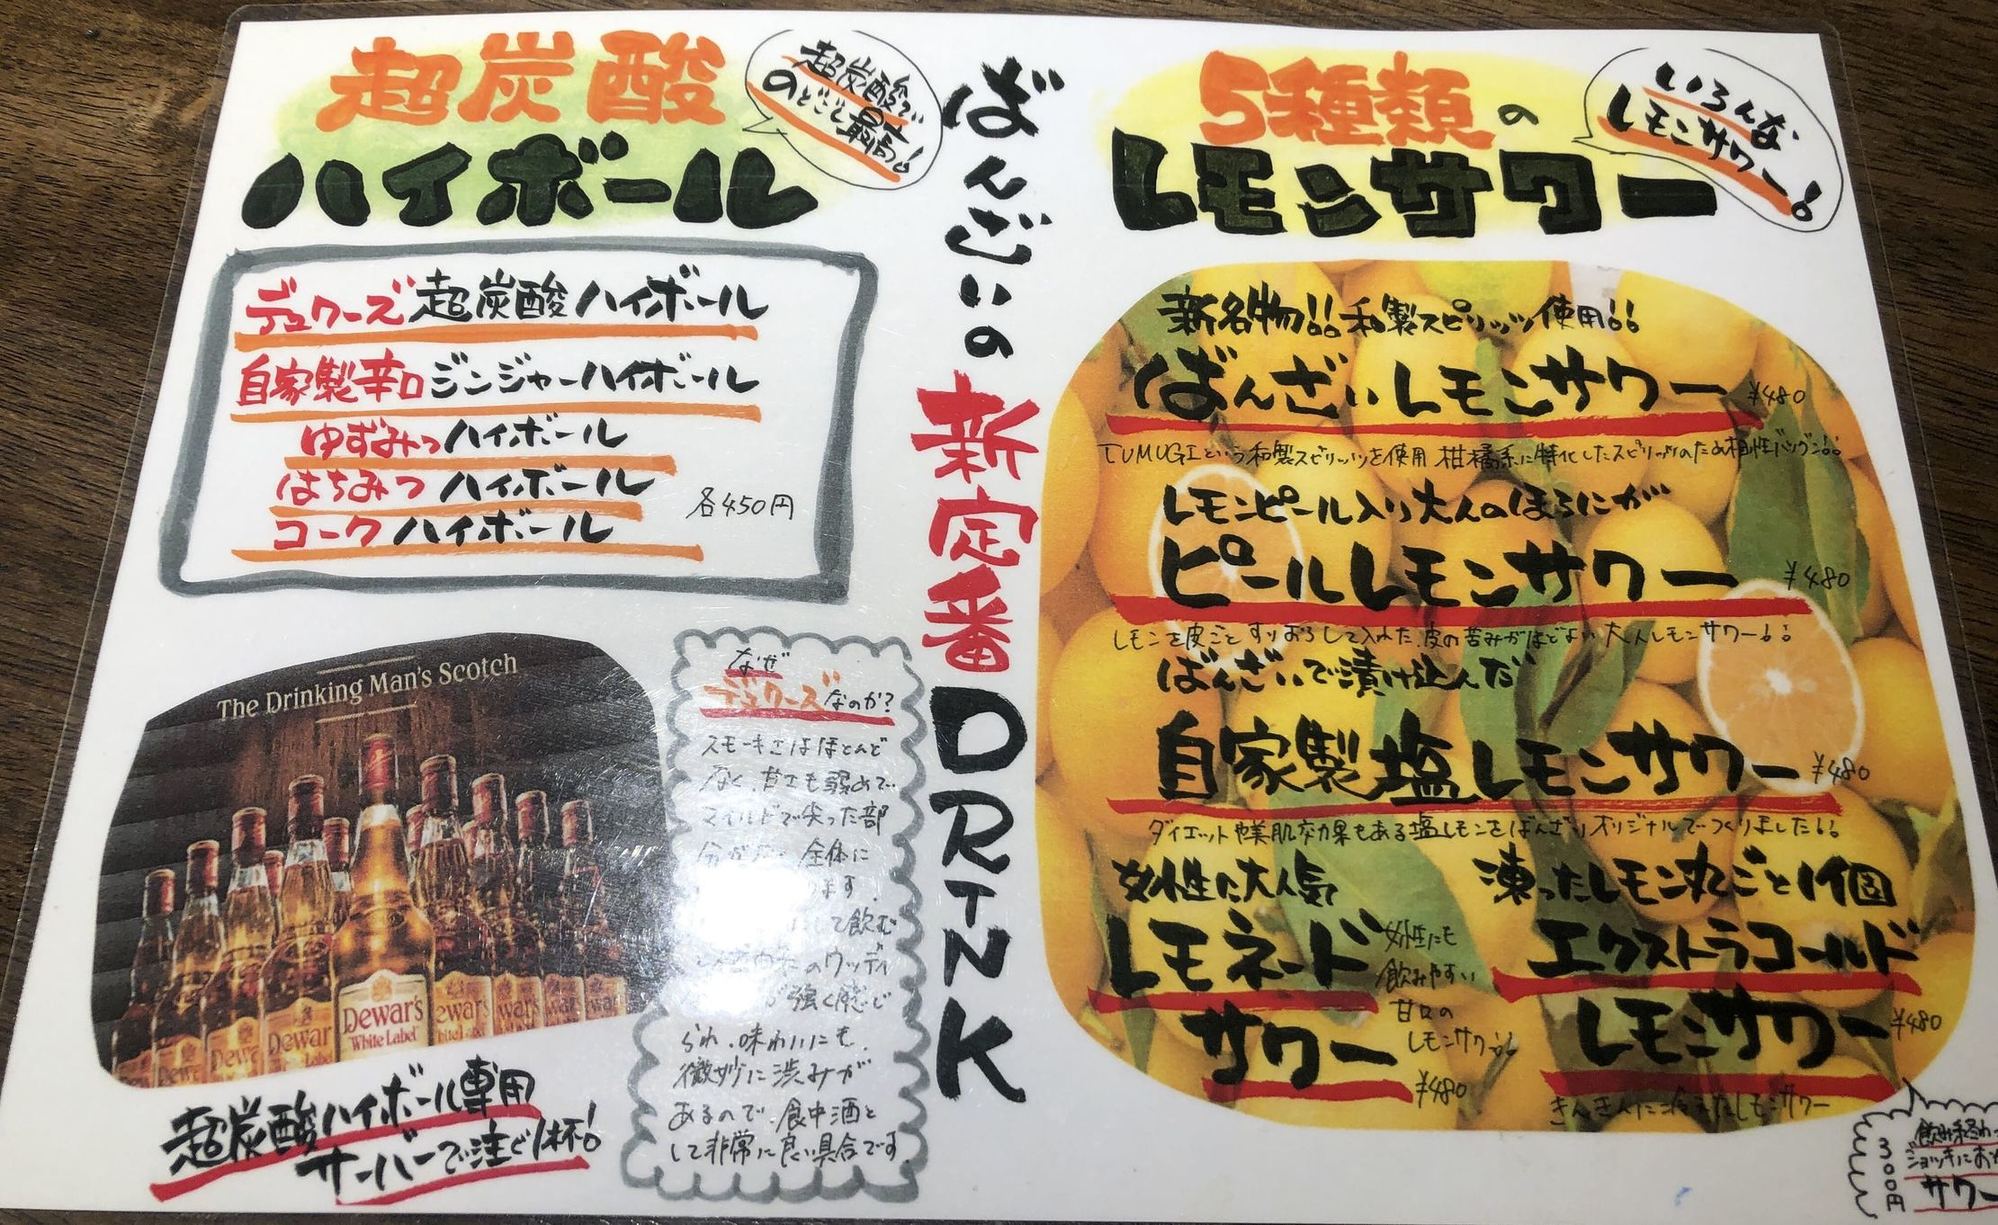 超炭酸
ハイボール
超炭酸で
のどごし最高!
デュワーズ超炭酸ハイボール
自家製辛口ジンジャーハイボール
ゆずみつハイボール
はちみつハイボール
コークハイボール
各450円
The Drinking Man's Scotch
Dewar's
White Label
超炭酸ハイボール専用
サーバーで注ぐ1杯!
なぜ
デュワーズなのか?
スモーキさはほとんど
なく、甘さも弱めで、
マイルドで尖った部
全体に
ます。
して飲む
のウッディ
が強く感じ
られ、味わいにも、
微妙に渋みが
あるので、食中酒と
して非常に良い具合です
ばんざいの
新定番
DRINK
5種類の
レモンサワー
いろんな
レモンサワー!
新名物!!和製スピリッツ使用!!
ばんざいレモンサワー ¥480
TUMUGIという和製スピリッツを使用 柑橘系に特化したスピリッツのため相性バツグン!!
レモンピール入り大人のほろにが
ピールレモンサワー ¥480
レモンを皮ごとすりおろして入れた、皮の苦みがほどよい大人レモンサワー!!
ばんざいで漬け込んだ
自家製塩レモンサワー ¥480
ダイエットや美肌効果もある塩レモンをばんざいオリジナルでつくりました!!
女性に大人気
レモネード
サワー
女性にも
飲みやすい
甘口の
レモンサワー!!
¥480
凍ったレモン丸ごと1個
エクストラコールド
レモンサワー ¥480
きんきんに冷えたレモンサワー
飲み終わっ
ジョッキにお
サワー
300円